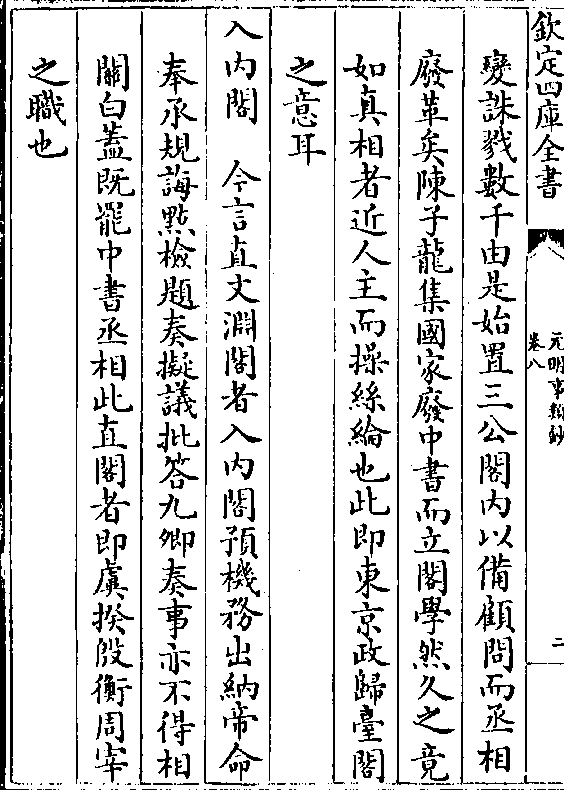 欽定四庫全書
元明事類鈔
卷八
二
變誅戮數千由是始置三公閣內以備顧問而丞相
廢革矣陳子龍集國家廢中書而立閣學然久之竟
如真相者近人主而操絲綸也此即東京政歸臺閣
之意耳
入內閣　今言直文淵閣者入內閣預機務出納帝命
奉承規誨㸃檢題奏擬議批答九卿奏事亦不得相
關白蓋既罷中書丞相此直閣者即虞揆殷衡周宰
之職也